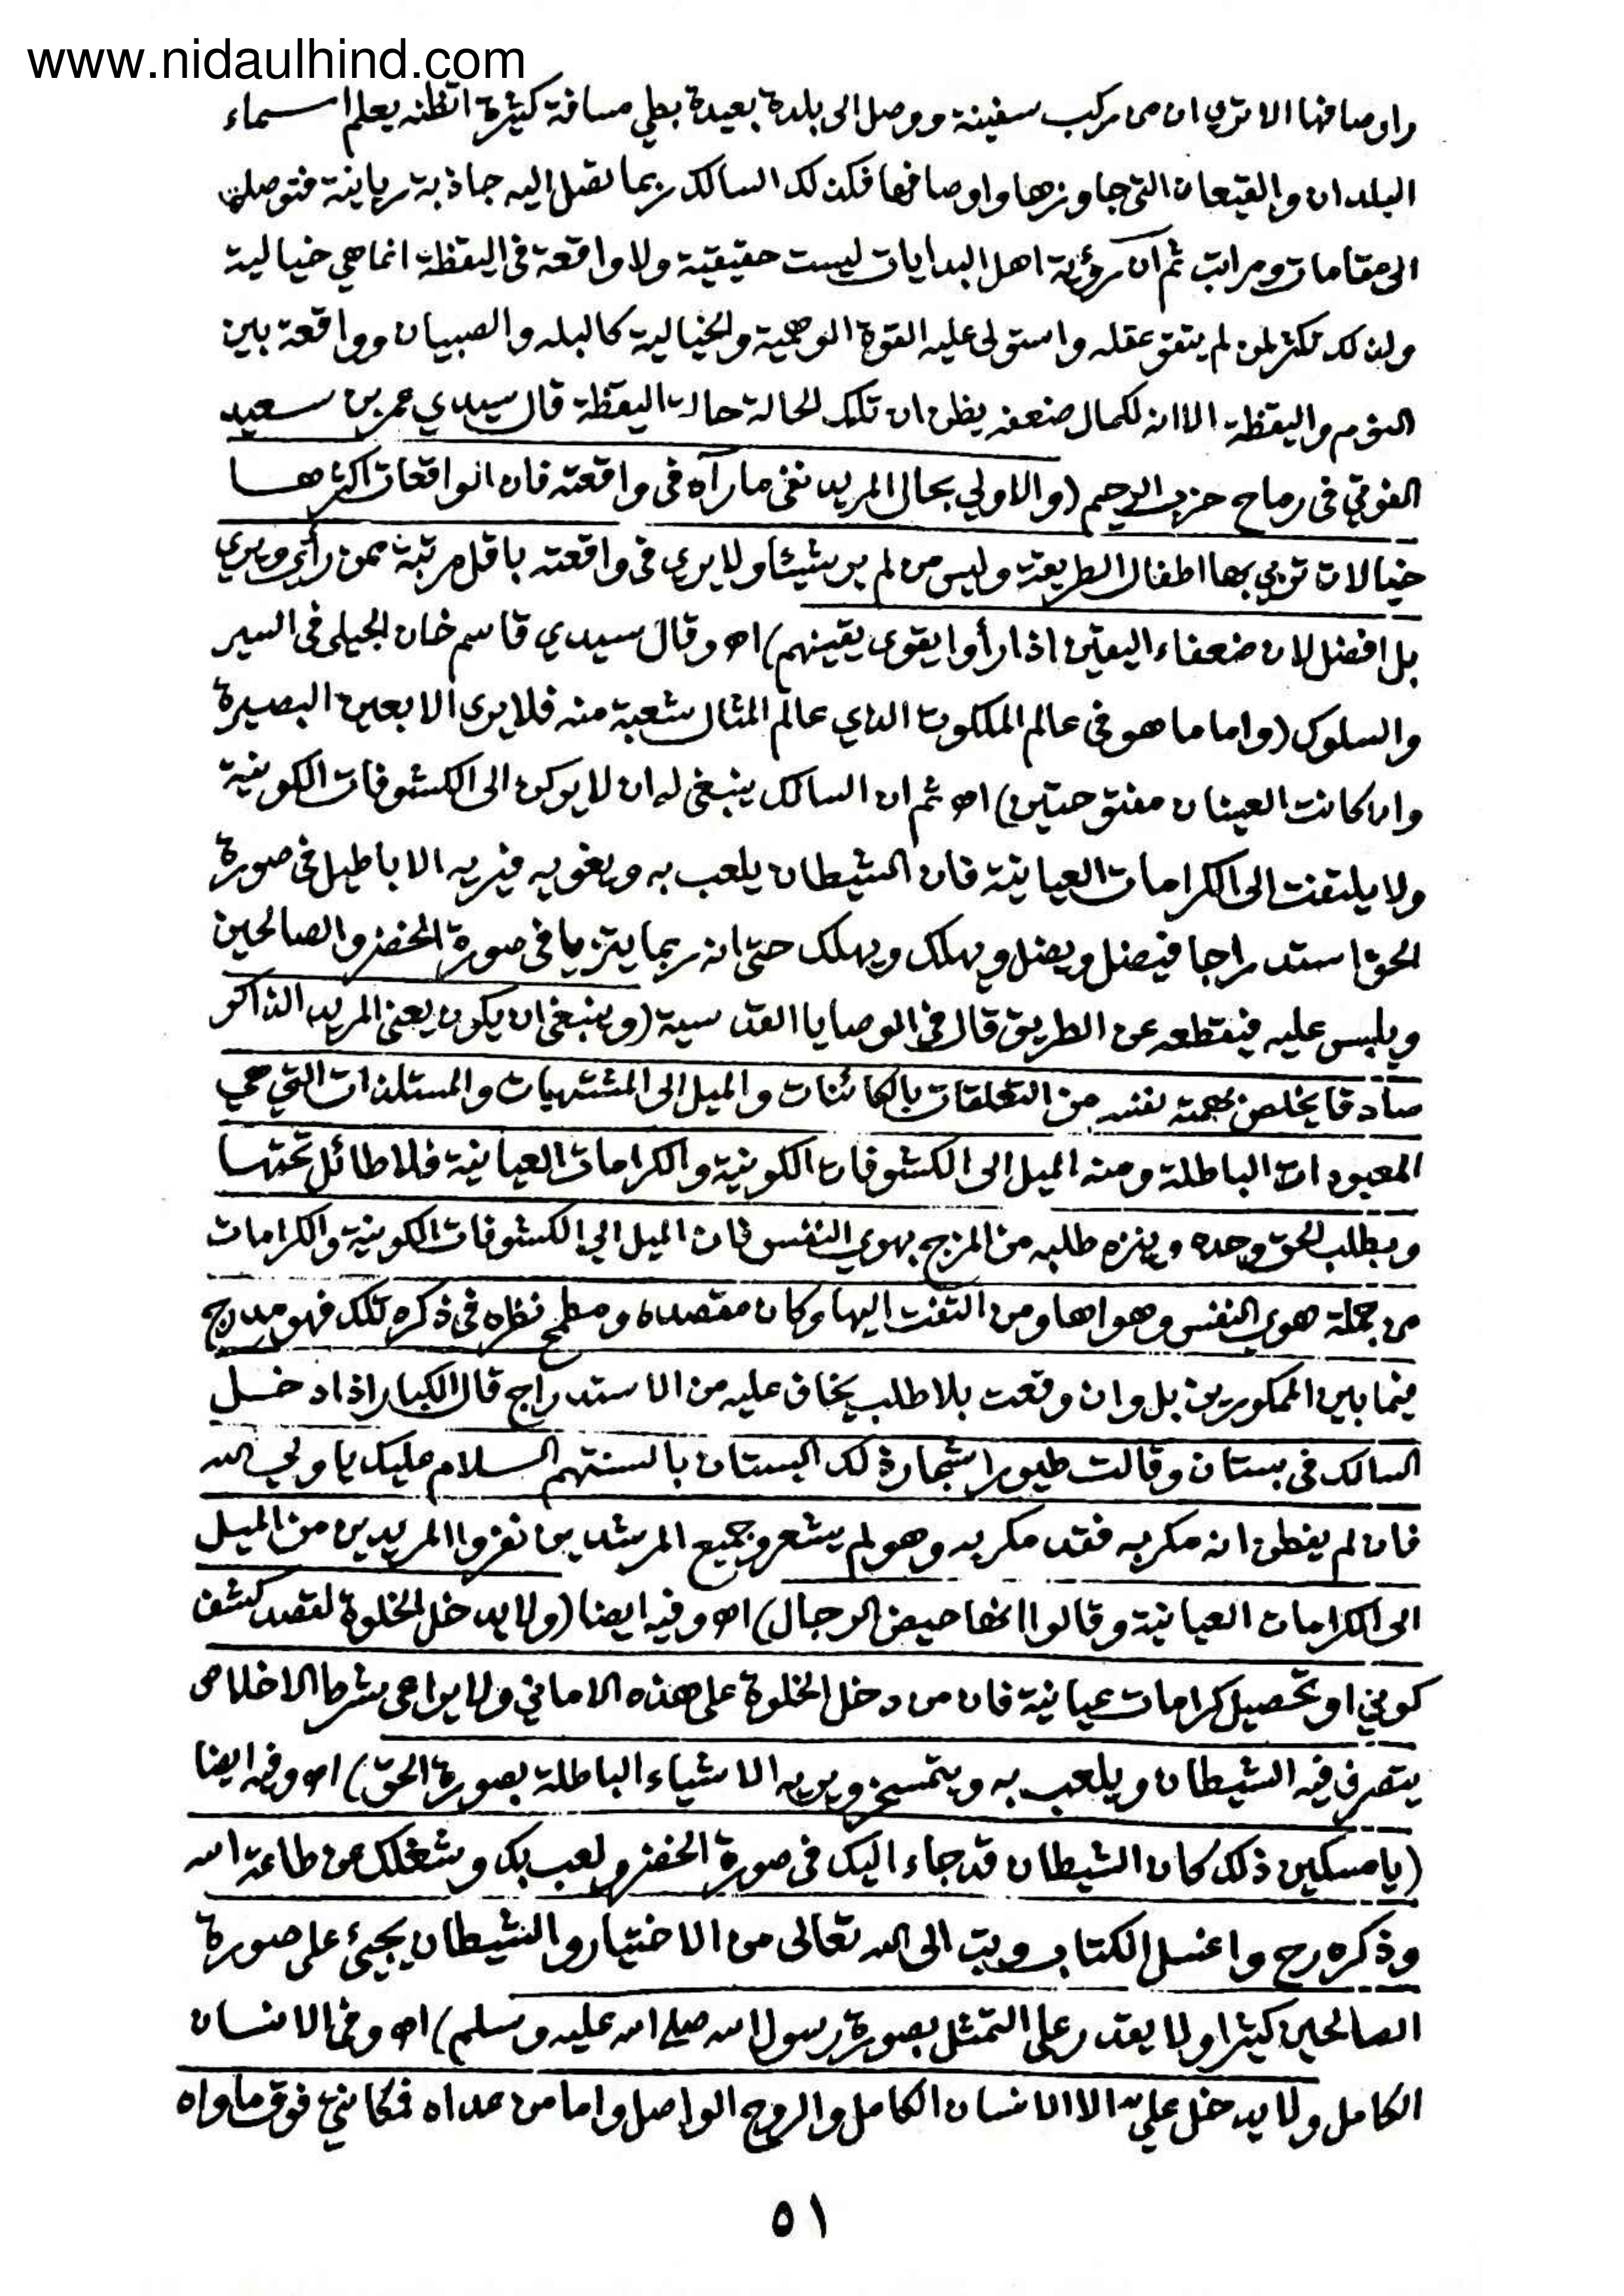 www.nidaulhind.com
واوصافها الا ترى ان من ركب سفينة ووصل الى بلدة بعيدة بطي مسافة كثيرة اتظنه يعلم اسماء
البلدان والقيعان التى جاوزها واوصافها فكذلك السالك ربما تصل اليه جاذبة ربانية فتوصله
الى مقامات ومراتب ثم ان رؤية اهل البدايات ليست حقيقية ولا واقعة فى اليقظة انما هي خيالية
ولذلك تكثر لمن لم يتقو عقله واستولى عليه القوة الوهمية والخيالية كالبله والصبيان وواقعة بين
النوم واليقظة الا انه لكمال ضعفه يظن ان تلك الحالة حالة اليقظة قال سيدي عمر بن سعيد
الفوتي فى رماح حزب الرحيم (والاولي بحال المريد نفى ما رآه فى واقعته فان الواقعات اكثرها
خيالات تربي بها اطفال الطريقة وليس من لم ير شيئا ولا يرى فى واقعته باقل مرتبة ممن رأى ويري
بل افضل لان ضعفاء اليقين اذا رأوا يقوى يقينهم) اه وقال سيدي قاسم خان الجيلى فى السير
والسلوك (واما ما هو فى عالم الملكوت الذي عالم المثال شعبة منه فلا يرى الا بعين البصيرة
وان كانت العينان مفتوحتين) اه ثم ان السالك ينبغى له ان لا يركن الى الكشوفات الكونية
ولا يلتفت الى الكرامات العيانية فان الشيطان يلعب به ويغويه فيريه الاباطيل فى صورة
الحق استدراجا فيضل ويضل ويهلك ويهلك حتى انه ربما يتزيا فى صورة الخضر والصالحين
ويلبس عليه فيقطعه عن الطريق قال في الوصايا القدسية (وينبغى ان يكون يعنى المريد الذاكر
صادقا يخلص بهمته نفسه من التعلقات بالكائنات والميل الى المشتهيات والمستلذات التي هي
المعبودات الباطلة ومنه الميل الى الكشوفات الكونية والكرامات العيانية فلا طائل تحتها
ويطلب الحق وحده وينزه طلبه من المزج بهوي النفس فان الميل الي الكشوفات الكونية والكرامات
من جملة هوى النفس وهواها ومن التفت اليها وكان مقصده ومطمح نظره فى ذكره تلك فهو مدرج
فيما بين الممكورين بل وان وقعت بلا طلب يخاف عليه من الاستدراج قال الكبار اذا دخل
السالك فى بستان وقالت طيور اشجار ذلك البستان بالسنتهم السلام عليك يا ولي الله
فان لم يفطن انه مكر به فقد مكر به وهو لم يشعر وجميع المرشدين نفروا المريدين من الميل
الى الكرامات العيانية وقالوا انها حيض الرجال) اه وفيه ايضا (ولا يدخل الخلوة لقصد كشف
كوني او تحصيل كرامات عيانية فان من دخل الخلوة على هذه الاماني ولا يراعى شرط الاخلاص
يتصرف فيه الشيطان ويلعب به ويتمسخر ويريه الاشياء الباطلة بصورة الحق) اه وفيه ايضا
(يا مسكين ذلك كان الشيطان قد جاء اليك فى صورة الخضر ولعب بك وشغلك عن طاعة الله
وذكره رح واغسل الكتاب وتب الى الله تعالى من الاختيار والشيطان يجيئ على صورة
الصالحين كثيرا ولا يقدر على التمثل بصورة رسول الله صلى الله عليه وسلم) اه وفى الانسان
الكامل ولا يدخل عليه الا الانسان الكامل والروح الواصل واما من عداه فمكانه فوق مأواه
٥١